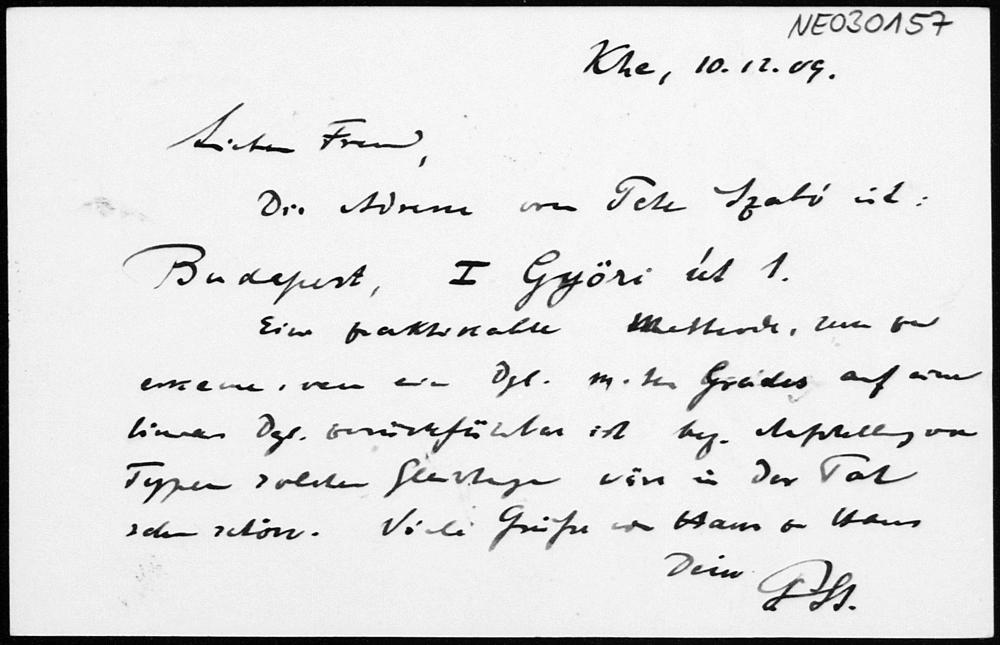 NE030157
Khe, 10.12.09.
Lieber Freund,
Die Adresse von Peter Szabó ist:
Budapest, I Györi út 1.
Eine praktikable Methode, zum
wenn ein Dgl. m-ten Grades auf eine
lineare Dgl. zurückführbar ist bzg. Aufstellung von
Typen solcher Gleichungen wäre in der Tat
sehr schön. Viele Grüße von Haus zu Haus
Dein